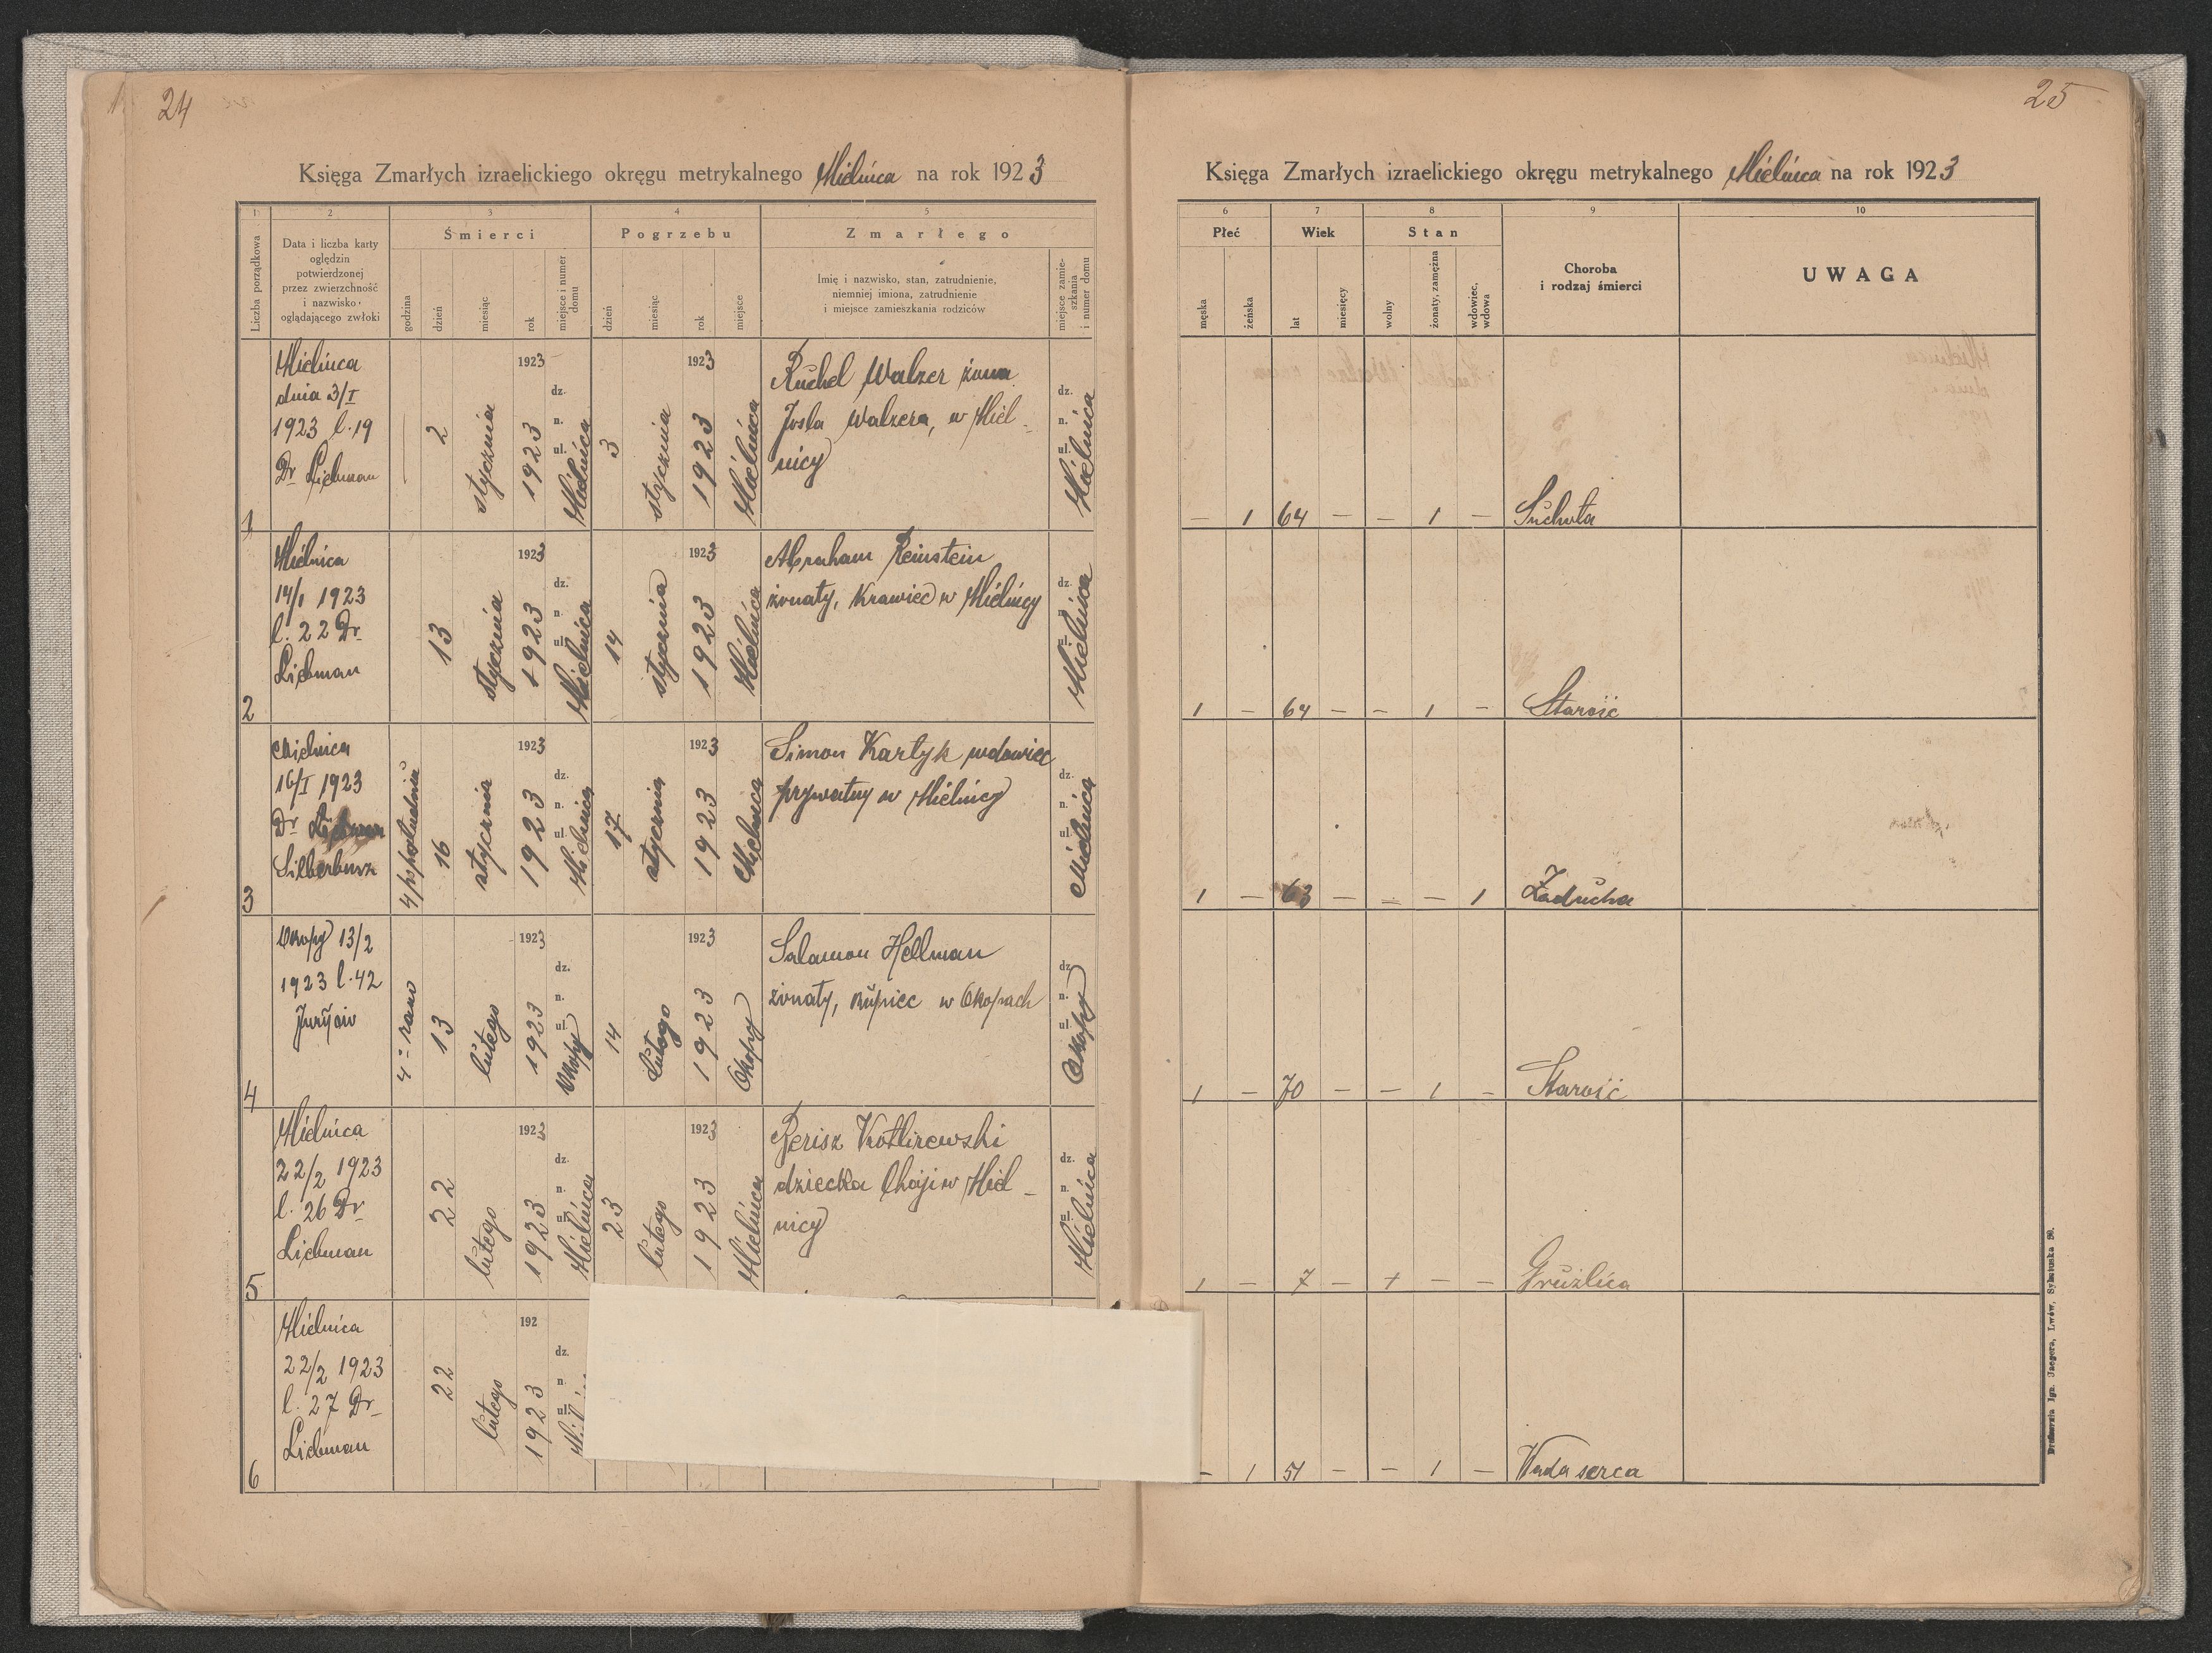 24
Księga Zmarłych izraelickiego okręgu metrykalnego Mielnica na rok 1923
1
2
3
4
5
Liczba porządkowa
Data i liczba karty
oględzin
potwierdzonej
przez zwierzchność
i nazwisko
oglądającego zwłoki
Śmierci
godzina
dzień
miesiąc
rok
miejsce i numer
domu
Pogrzebu
dzień
miesiąc
rok
miejsce
Zmarłego
Imię i nazwisko, stan, zatrudnienie,
niemniej imiona, zatrudnienie
i miejsce zamieszkania rodziców
miejsce zamie-
szkania
i numer domu
1
Mielnica
dnia 3/I
1923 l. 19
Dr Liebman
2
stycznia
1923
1923
dz.
n.
ul.
Mielnica
3
stycznia
1923
1923
Mielnica
Ruchel Walzer żona
Josla Walzera, w Miel-
nicy
dz.
n.
ul.
Mielnica
2
Mielnica
14/1 1923
l. 22 Dr
Liebman
13
stycznia
1923
1923
dz.
n.
ul.
Mielnica
14
stycznia
1923
1923
Mielnica
Abraham Reinstein
żonaty, Krawiec w Mielnicy
dz.
n.
ul.
Mielnica
3
Mielnica
16/I 1923
Dr
Silberbusz
4 p popołudniu
16
stycznia
1923
1923
dz.
n.
ul.
Mielnica
17
stycznia
1923
1923
Mielnica
Simon Kartyk wdowiec
prywatny w Mielnicy
dz.
n.
ul.
Mielnica
4
Okopy 13/2
1923 l. 42
Juryjow
4 rano
13
lutego
1923
1923
dz.
n.
ul.
Okopy
14
lutego
1923
1923
Okopy
Salamon Hellman
żonaty, kupiec w Okopach
dz.
n.
ul.
Okopy
5
Mielnica
22/2 1923
l. 26 Dr
Liebman
22
lutego
1923
1923
dz.
n.
ul.
Mielnica
23
lutego
1923
1923
Mielnica
Berisz Kotlirewski
dziecko Chaji w Miel-
nicy
dz.
n.
ul.
Mielnica
6
Mielnica
22/2 1923
l. 27 Dr
Liebman
22
lutego
192
1923
dz.
n.
ul.
25
Księga Zmarłych izraelickiego okręgu metrykalnego Mielnica na rok 1923
6
7
8
9
10
Płeć
męska
żeńska
Wiek
lat
miesięcy
Stan
wolny
żonaty, zamężna
wdowiec,
wdowa
Choroba
i rodzaj śmierci
UWAGA
— 1 64 — — 1 — Suchota
1 — 64 — — 1 — Starość
1 — 63 — — — 1 Zaducha
1 — 70 — — 1 — Starość
1 — 7 — 1 — — Gruźlica
— 1 51 — — 1 — Wada serca
Drukarnia Ign. Jaegera, Lwów, Sykstuska 30.